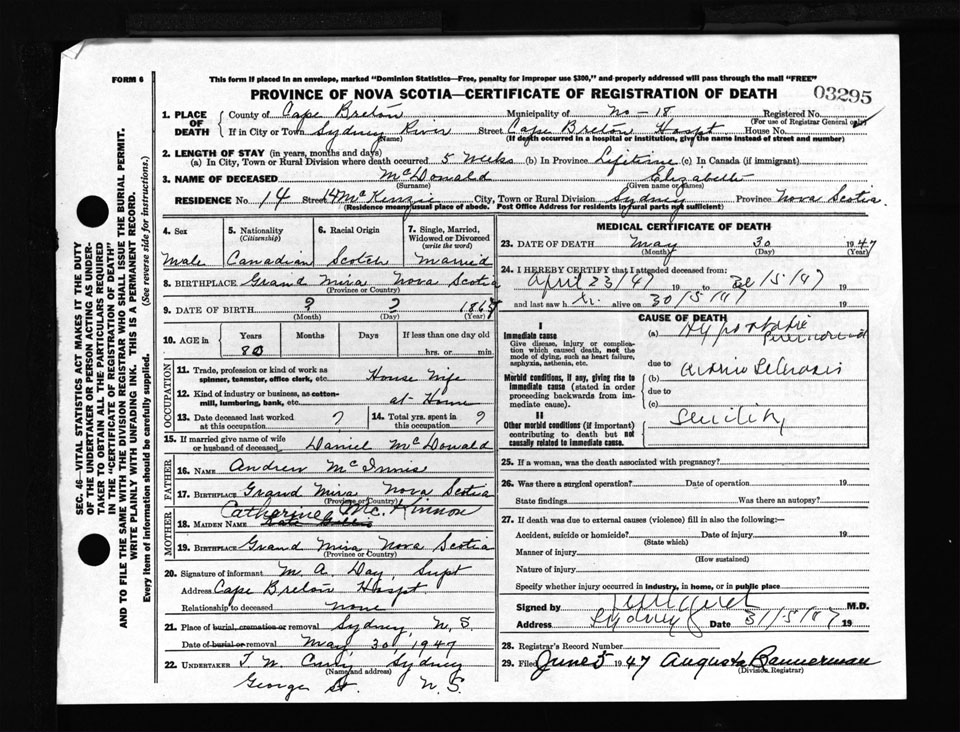 FORM 6
This form if placed in an envelope, marked "Dominion Statistics—Free, penalty for improper use $300," and properly addressed will pass through the mail "FREE"
PROVINCE OF NOVA SCOTIA—CERTIFICATE OF REGISTRATION OF DEATH
03295
1. PLACE OF DEATH County of Cape Breton Municipality of No - 18 Registered No.
(For use of Registrar General only)
If in City or Town Sydney River Street Cape Breton Hospt. House No.
(Name) (If death occurred in a hospital or institution, give the name instead of street and number)
2. LENGTH OF STAY (in years, months and days)
(a) In City, Town or Rural Division where death occurred 5 weeks (b) In Province Lifetime (c) In Canada (if immigrant)
3. NAME OF DECEASED McDonald Elizabeth
(Surname) (Given name or names)
RESIDENCE No. 14 Street McKenzie City, Town or Rural Division Sydney Province Nova Scotia
(Residence means usual place of abode. Post Office Address for residents in rural parts not sufficient)
4. Sex 5. Nationality (Citizenship) 6. Racial Origin 7. Single, Married, Widowed or Divorced (write the word)
Male Canadian Scotch Married
8. BIRTHPLACE Grand Mira Nova Scotia
(Province or Country)
9. DATE OF BIRTH ? ? 186
(Month) (Day) (Year)
10. AGE in Years Months Days If less than one day old
80 hrs. or min.
OCCUPATION
11. Trade, profession or kind of work as spinner, teamster, office clerk, etc. House Wife
12. Kind of industry or business, as cotton-mill, lumbering, bank, etc. at Home
13. Date deceased last worked at this occupation ? 14. Total yrs. spent in this occupation ?
15. If married give name of wife or husband of deceased Daniel McDonald
FATHER
16. NAME Andrew McInnis
17. BIRTHPLACE Grand Mira Nova Scotia
(Province or Country)
MOTHER
Catherine Mc.Kinnon
18. MAIDEN NAME
19. BIRTHPLACE Grand Mira Nova Scotia
(Province or Country)
20. Signature of informant M. A. Day, Supt
Address Cape Breton Hospt.
Relationship to deceased None
21. Place of burial, cremation or removal Sydney, N.S.
Date of burial or removal May 30 1947
22. UNDERTAKER T. W. Curry, Sydney
(Name and address)
George St. N.S.
MEDICAL CERTIFICATE OF DEATH
23. DATE OF DEATH May 30 1947
(Month) (Day) (Year)
24. I HEREBY CERTIFY that I attended deceased from:
April 23/47 19 to 30/5/47 19
and last saw h alive on 30/5/47 19
CAUSE OF DEATH
I
Immediate cause (a) Hypostatic
Give disease, injury or complication which caused death, not the mode of dying, such as heart failure, asphyxia, asthenia, etc.
due to
Morbid conditions, if any, giving rise to immediate cause (stated in order proceeding backwards from immediate cause).
(b)
due to
(c)
II
Other morbid conditions (if important) contributing to death but not causally related to immediate cause.
Senility
25. If a woman, was the death associated with pregnancy?
26. Was there a surgical operation? Date of operation 19
State findings Was there an autopsy?
27. If death was due to external causes (violence) fill in also the following:—
Accident, suicide or homicide? Date of injury 19
(State which)
Manner of injury
(How sustained)
Nature of injury
Specify whether injury occurred in industry, in home, or in public place
Signed by M.D.
Address Sydney Date 31/5/47 19
28. Registrar's Record Number
29. Filed June 5 1947 Augusta Bannerman
(Division Registrar)
SEC. 46—VITAL STATISTICS ACT MAKES IT THE DUTY
OF THE UNDERTAKER OR PERSON ACTING AS UNDERTAKER TO OBTAIN ALL THE PARTICULARS REQUIRED
IN THE "CERTIFICATE OF REGISTRATION OF DEATH"
AND TO FILE THE SAME WITH THE DIVISION REGISTRAR WHO SHALL ISSUE THE BURIAL PERMIT.
WRITE PLAINLY WITH UNFADING INK. THIS IS A PERMANENT RECORD.
Every item of information should be carefully supplied. (See reverse side for instructions.)